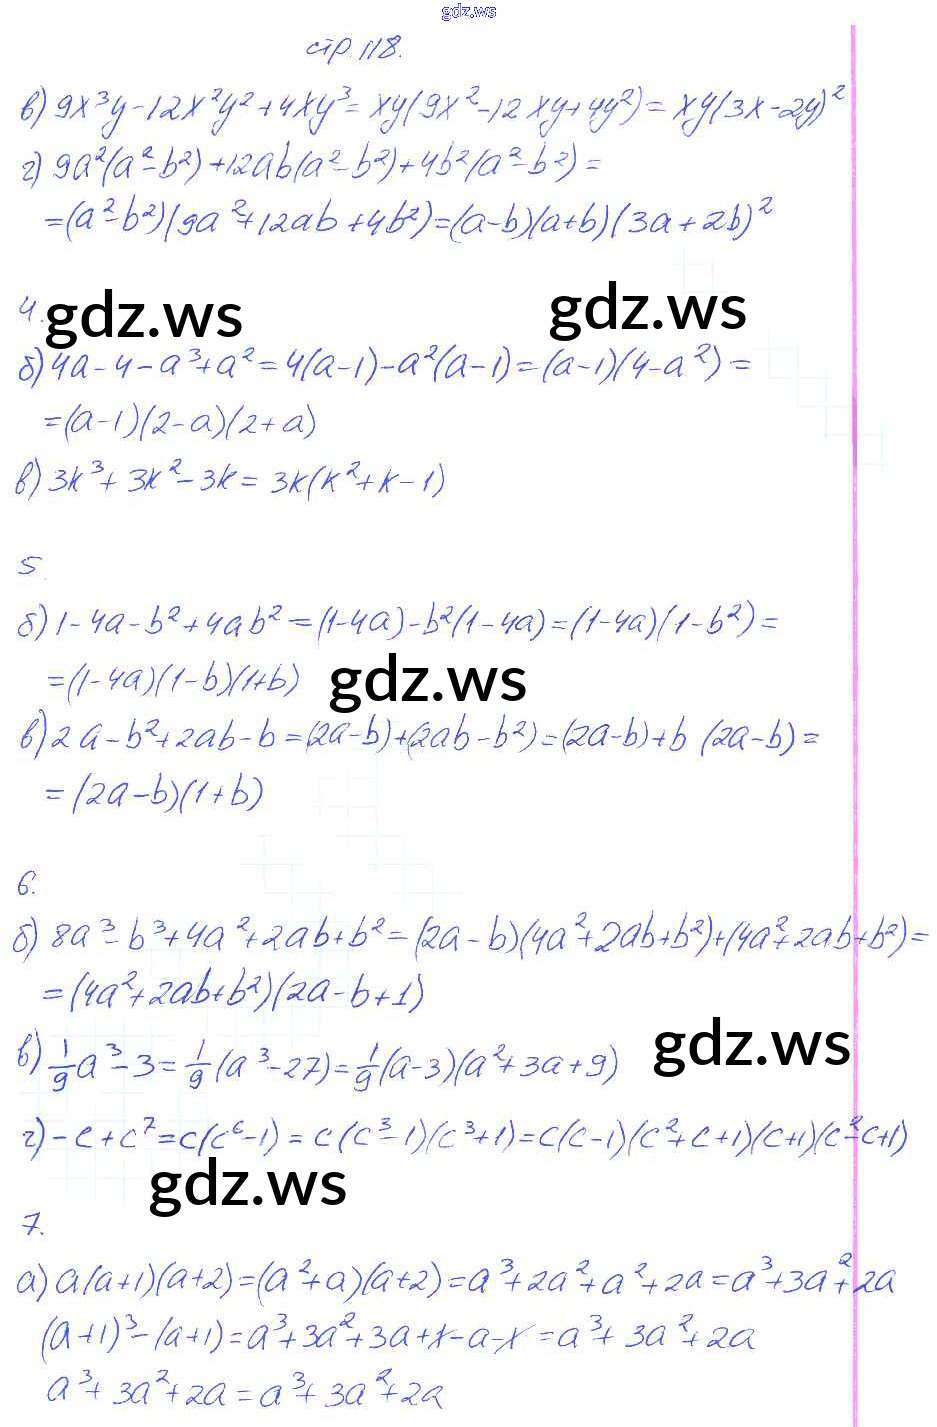 gdz.ws
стр. 118.
в) 9x³y - 12x²y² + 4xy³ = xy(9x² - 12xy + 4y²) = xy(3x - 2y)²
г) 9a²(a² - b²) + 12ab(a² - b²) + 4b²(a² - b²) =
= (a² - b²)(9a² + 12ab + 4b²) = (a - b)(a + b)(3a + 2b)²
4.
gdz.ws gdz.ws
б) 4a - 4 - a³ + a² = 4(a - 1) - a²(a - 1) = (a - 1)(4 - a²) =
= (a - 1)(2 - a)(2 + a)
в) 3k³ + 3k² - 3k = 3k(k² + k - 1)
5.
б) 1 - 4a - b² + 4ab² = (1 - 4a) - b²(1 - 4a) = (1 - 4a)(1 - b²) =
= (1 - 4a)(1 - b)(1 + b)
gdz.ws
в) 2a - b² + 2ab - b = (2a - b) + (2ab - b²) = (2a - b) + b (2a - b) =
= (2a - b)(1 + b)
6.
б) 8a³ - b³ + 4a² + 2ab + b² = (2a - b)(4a² + 2ab + b²) + (4a² + 2ab + b²) =
= (4a² + 2ab + b²)(2a - b + 1)
в) 1/9 a³ - 3 = 1/9 (a³ - 27) = 1/9 (a - 3)(a² + 3a + 9)
gdz.ws
г) - c + c⁷ = c(c⁶ - 1) = c(c³ - 1)(c³ + 1) = c(c - 1)(c² + c + 1)(c + 1)(c² - c + 1)
gdz.ws
7.
а) a(a + 1)(a + 2) = (a² + a)(a + 2) = a³ + 2a² + a² + 2a = a³ + 3a² + 2a
(a + 1)³ - (a + 1) = a³ + 3a² + 3a + 1 - a - 1 = a³ + 3a² + 2a
a³ + 3a² + 2a = a³ + 3a² + 2a